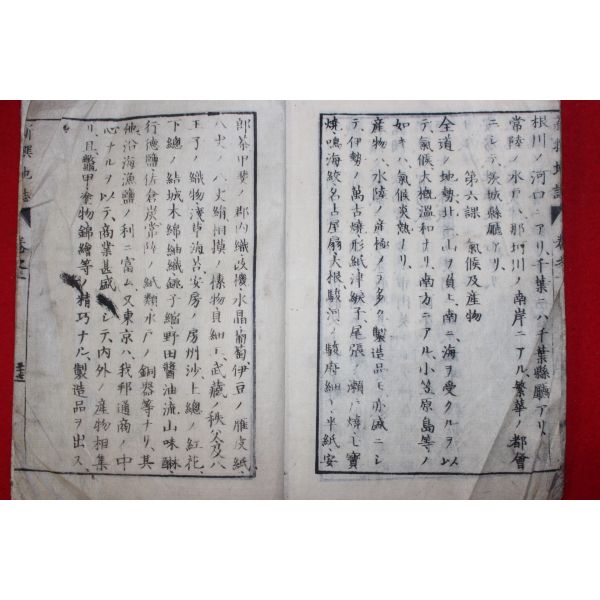 根川ノ河口ニアリ、千葉ニハ千葉縣廳アリ、
常陸ノ水戸ハ、那珂川ノ南岸ニアル、繁華ノ都會
ニシテ、茨城縣廳アリ、
第六課 氣候及産物
全道ノ地勢、北ニ山ヲ負ヒ、南ニ海ヲ受クルヲ以
テ、氣候大概温和ナリ、南方ニアル、小笠原島等ノ
如キハ、氣候炎熱ナリ、
産物ハ、水陸ノ産極メテ多ク、製造品モ亦盛ニシ
テ、伊勢ノ萬古焼、形紙、津綟子、尾張ノ瀬戸焼、七寶
焼、鳴海絞、名古屋扇、大根、駿河ノ駿府細工、半紙、安
新撰地誌 卷之二
郎茶、甲斐ノ郡内織、改機、水晶、葡萄、伊豆ノ雁皮紙、
八丈ノ八丈絹、相模ノ挽物、貝細工、武藏ノ秩父及八
王子織物、淺草海苔、安房ノ房州沙、上總ノ紅花、
下總ノ結城木綿、紬織、銚子縮、野田醤油、流山味醂、
行德鹽、佐倉炭、常陸ノ紙類、水戸ノ銅器等ナリ、其
他沿海漁鹽ノ利ニ富ム、又東京ハ、我邦通商ノ中
心ナルヲ以テ、商業甚盛ニシテ、内外ノ産物相集
リ、且鼈甲、塗物、錦繪等ノ精巧ナル、製造品ヲ出ス、
新撰地誌